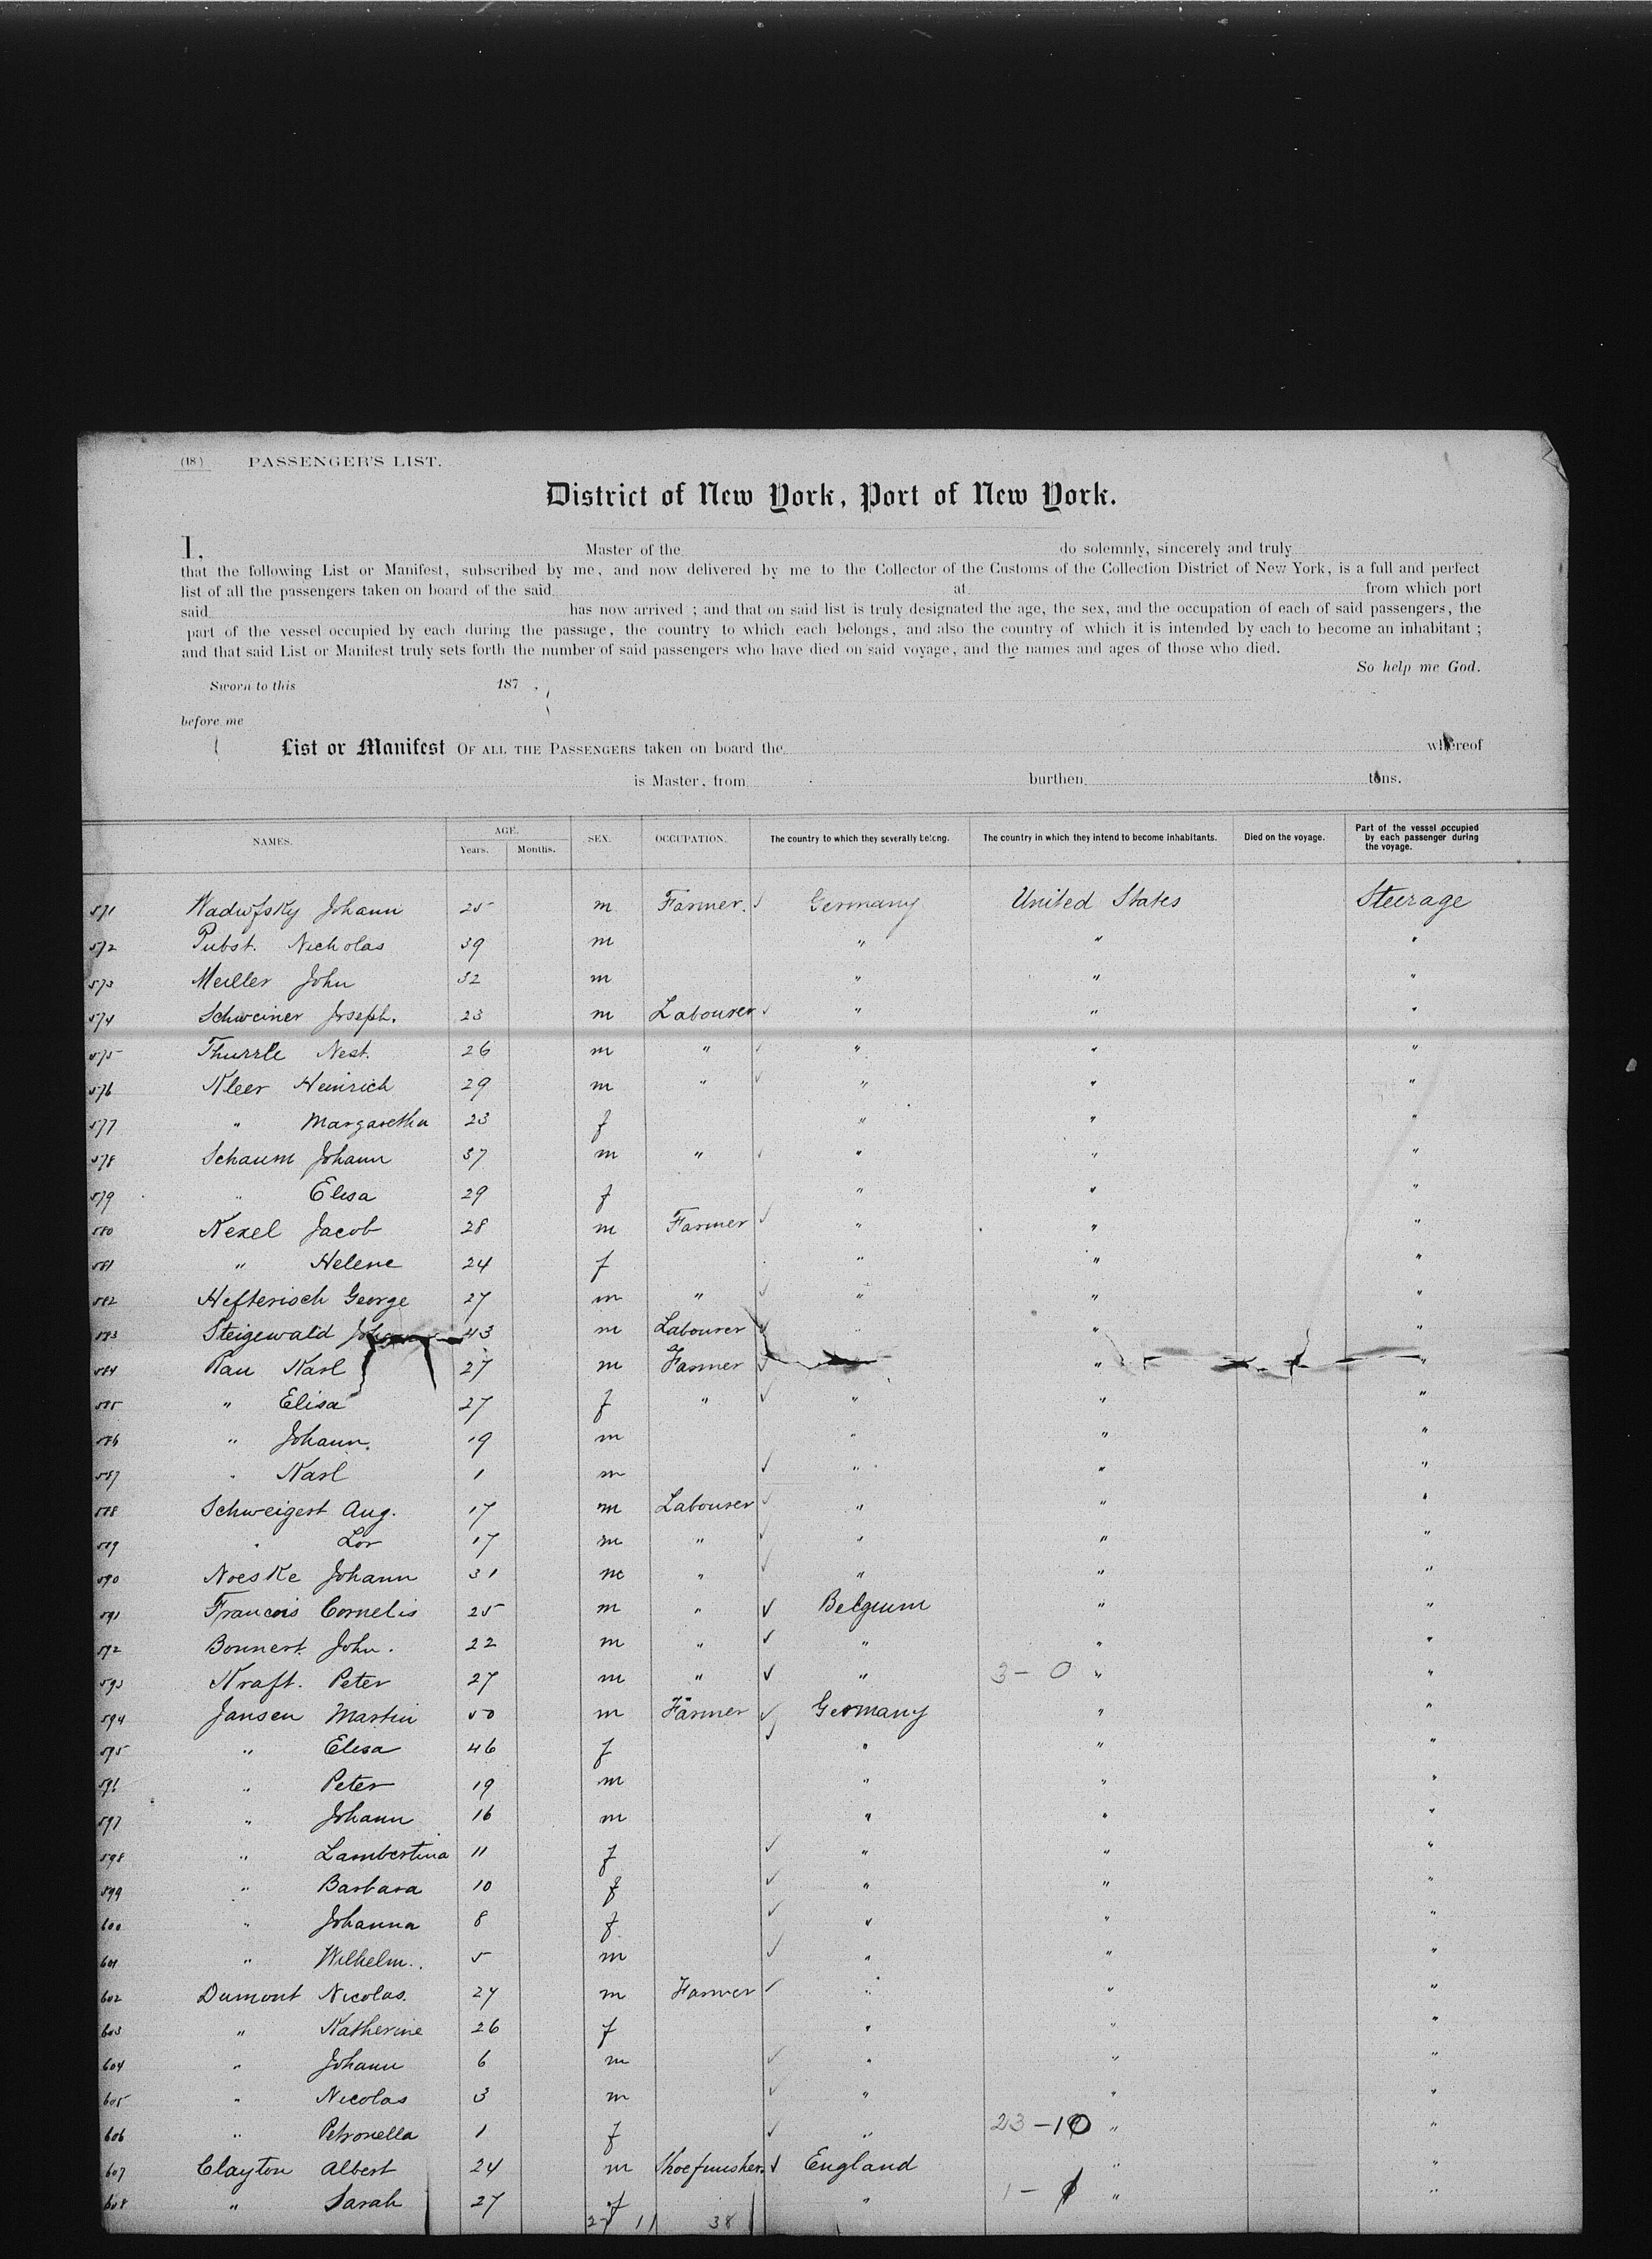 (18) PASSENGER'S LIST.
District of New York, Port of New York.
I, Master of the do solemnly, sincerely and truly
that the following List or Manifest, subscribed by me, and now delivered by me to the Collector of the Customs of the Collection District of New York, is a full and perfect
list of all the passengers taken on board of the said at from which port
said has now arrived ; and that on said list is truly designated the age, the sex, and the occupation of each of said passengers, the
part of the vessel occupied by each during the passage, the country to which each belongs, and also the country of which it is intended by each to become an inhabitant ;
and that said List or Manifest truly sets forth the number of said passengers who have died on said voyage, and the names and ages of those who died.
So help me God.
Sworn to this 187 ,
before me
List or Manifest OF ALL THE PASSENGERS taken on board the whereof
is Master, from burthen tons.
NAMES. AGE. Years. Months. SEX. OCCUPATION. The country to which they severally belong. The country in which they intend to become inhabitants. Died on the voyage. Part of the vessel occupied by each passenger during the voyage.
571 Johann 25 m Farmer. ✓ Germany United States Steerage
572 Pubst. Nicholas 39 m " " "
573 Meiller John 32 m " " "
574 Schweiner Joseph. 23 m Labourer ✓ " " "
575 Nest. 26 m " ✓ " " "
576 Kleer Heinrich 29 m " ✓ " " "
577 " Margaretha 23 f " " "
578 Schaum Johann 37 m " ✓ " " "
579 " Elisa 29 f " " "
580 Kexel Jacob 28 m Farmer ✓ " " "
581 " Helene 24 f " " "
582 Hefterisch George 27 m " ✓ " " "
583 Steigewald 43 m Labourer ✓ " " "
584 Rau Karl 27 m Farmer ✓ " "
585 " Elisa 27 f " ✓ " " "
586 " Johann. 19 m " " "
587 " Karl 1 m ✓ " " "
588 Schweigert Aug. 17 m Labourer ✓ " " "
589 " Lor 17 m " ✓ " " "
590 Noeske Johann 31 m " ✓ " " "
591 Francois Cornelis 25 m " ✓ Belgium " "
592 Bonnert. John. 22 m " ✓ " " "
593 Kraft. Peter 27 m " ✓ " 3 - 0 " "
594 Jansen Martin 50 m Farmer ✓ Germany " "
595 " Elisa 46 f ✓ " " "
596 " Peter 19 m " " "
597 " Johann 16 m " " "
598 " Lambertina 11 f ✓ " " "
599 " Barbara 10 f ✓ " " "
600 " Johanna 8 f ✓ " " "
601 " Wilhelm. 5 m ✓ " " "
602 Dumont Nicolas. 27 m Farmer ✓ " " "
603 " Katherine 26 f " " "
604 " Johann 6 m ✓ " " "
605 " Nicolas 3 m ✓ " " "
606 " Petronella 1 f ✓ " 23 - 10 " "
607 Clayton Albert 24 m Shoefinisher. ✓ England " "
608 " Sarah 27 f " 1 - " "
27 11 38